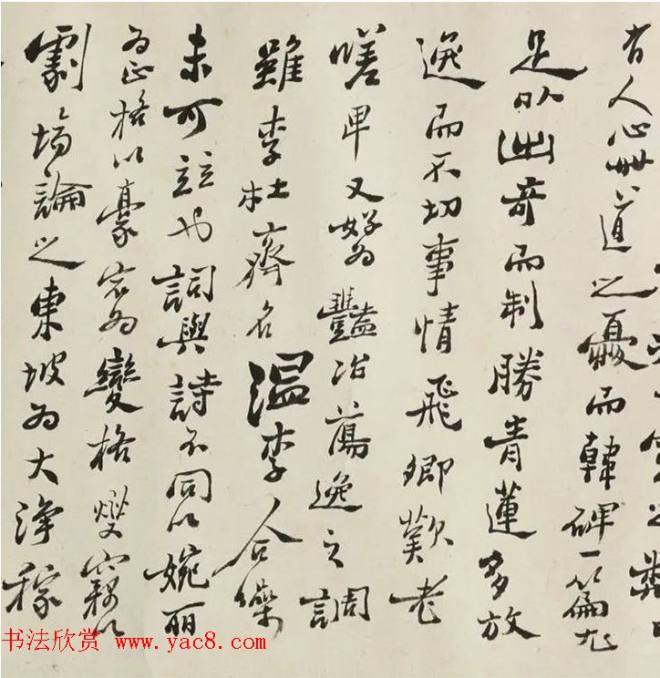 有人心世道之憂而韓碑一篇尤
足以出奇而制勝青蓮多放
逸而不切事情飛卿歎老
嗟卑又好為豔冶蕩逸之調
雖李杜齊名温李合噪
未可竝也詞與詩不同以婉丽
為正格以豪宕為變格燮竊以
劇場論之東坡為大淨稼
书法欣赏 www.yac8.com